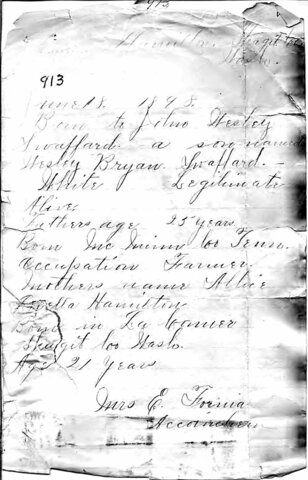 913
Hamilton Skagit Co
Wash.
913
June 18. 1898.
Born to John Wesley
Swafford a son named
Wesley Bryan Swafford. -
White Legitimate
Alive
Fathers age 25 years
Born McMinn Co Tenn.
Occupation Farmer
Mothers name Allie
Loretta Hamilton
Born in La Conner
Skagit Co Wash.
Age 21 Years
Mrs E.